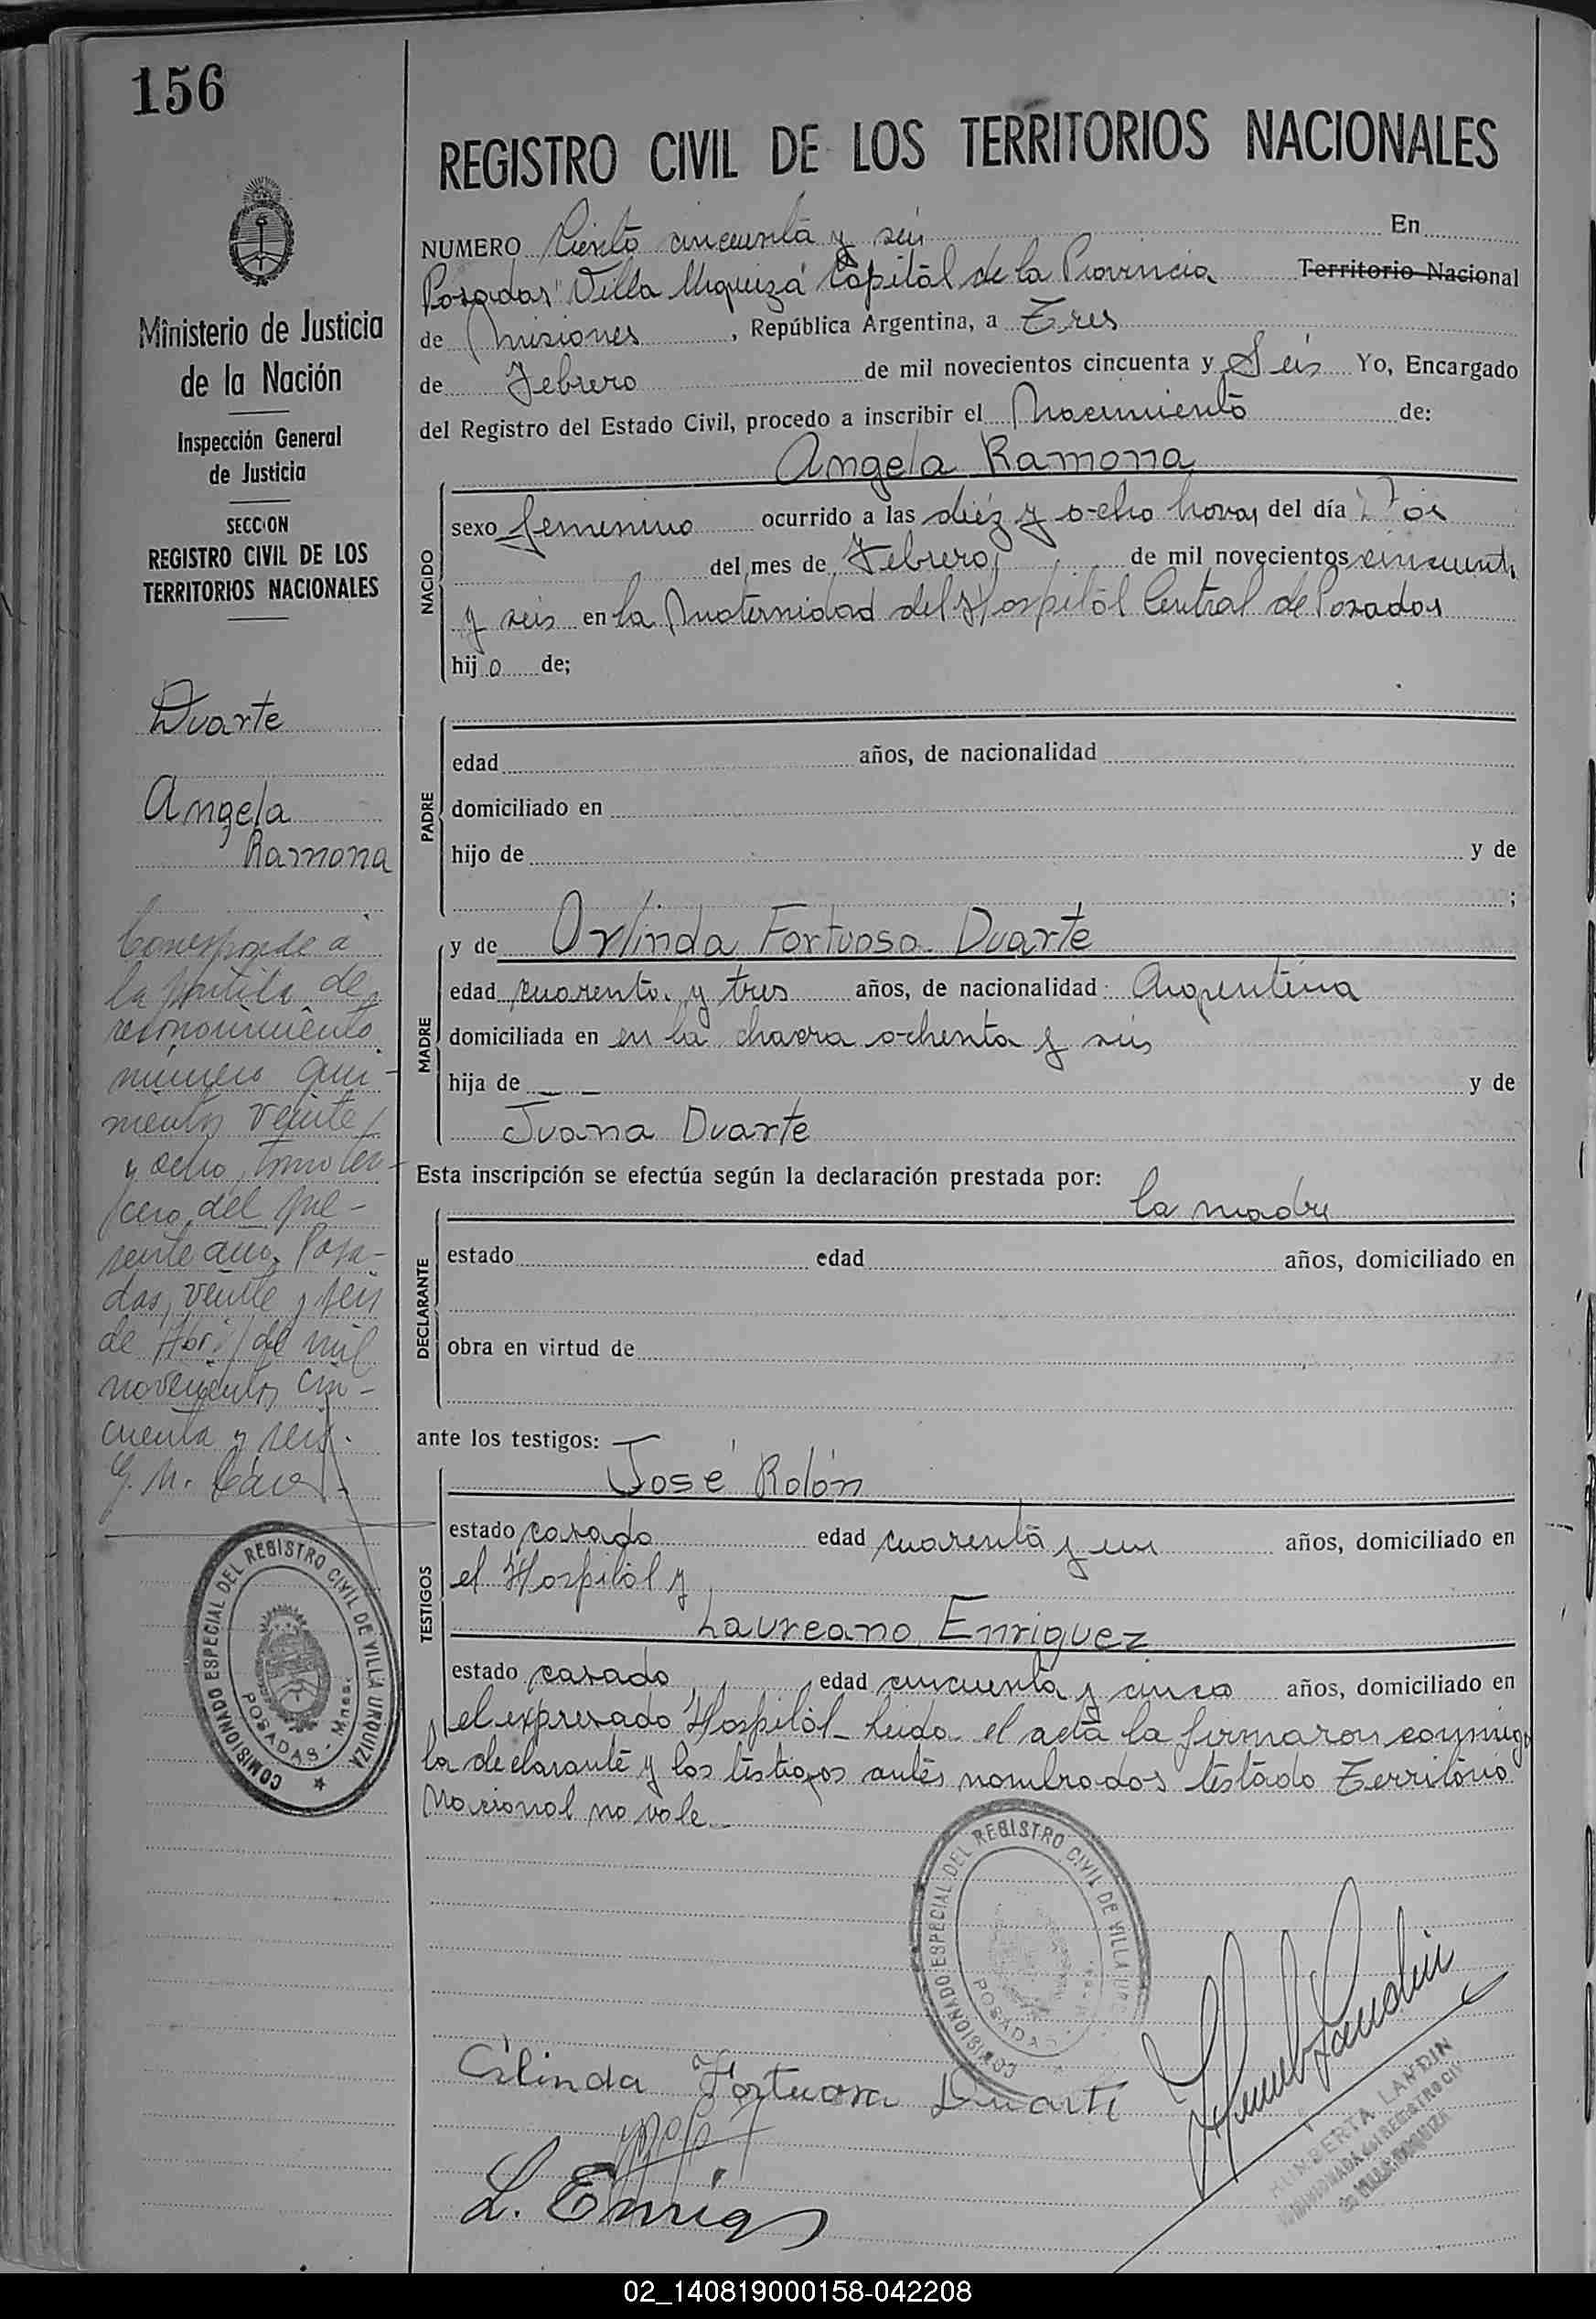 156
REGISTRO CIVIL DE LOS TERRITORIOS NACIONALES
Ministerio de Justicia
de la Nación
Inspección General
de Justicia
SECCION
REGISTRO CIVIL DE LOS
TERRITORIOS NACIONALES
Duarte
Angela
Ramona
Corresponde a
la partida de
reconocimiento
número qui-
nientos veinte
y ocho, tomo ter-
cero del pre-
sente año. Posa-
das, veinte y seis
de Abril de mil
novecientos cin-
cuenta y seis.
COMISIONADO ESPECIAL DEL REGISTRO CIVIL DE VILLA URQUIZA
POSADAS - Mnes.
NUMERO Ciento cincuenta y seis En
Posadas "Villa Urquiza" Capital de la Provincia Territorio Nacional
de Misiones, República Argentina, a Tres
de Febrero de mil novecientos cincuenta y Seis Yo, Encargado
del Registro del Estado Civil, procedo a inscribir el Nacimiento de:
Angela Ramona
NACIDO
sexo femenino ocurrido a las diéz y ocho horas del día Dos
del mes de Febrero de mil novecientos cincuenta
y seis en la Maternidad del Hospital Central de Posadas
hij a de;
PADRE
edad años, de nacionalidad
domiciliado en
hijo de y de
;
MADRE
y de Orlinda Fortuosa Duarte
edad cuarenta y tres años, de nacionalidad Argentina
domiciliada en en la chacra ochenta y seis
hija de — — y de
Juana Duarte
Esta inscripción se efectúa según la declaración prestada por:
la madre
DECLARANTE
estado edad años, domiciliado en
obra en virtud de
ante los testigos:
José Rolón
TESTIGOS
estado casado edad cuarenta y un años, domiciliado en
el Hospital y
Laureano Enriquez
estado casado edad cincuenta y cinco años, domiciliado en
el expresado Hospital - Leido el acta la firmaron conmigo
la declarante y los testigos antes nombrados testado Territorio
Nacional no vale
COMISIONADO ESPECIAL DEL REGISTRO CIVIL DE VILLA URQ
POSADAS
Orlinda Fortuosa Duarte
L. Enriq
HUMBERTA LANDIN
COMISIONADA del REGISTRO CIVIL
de VILLA URQUIZA
02_140819000158-042208